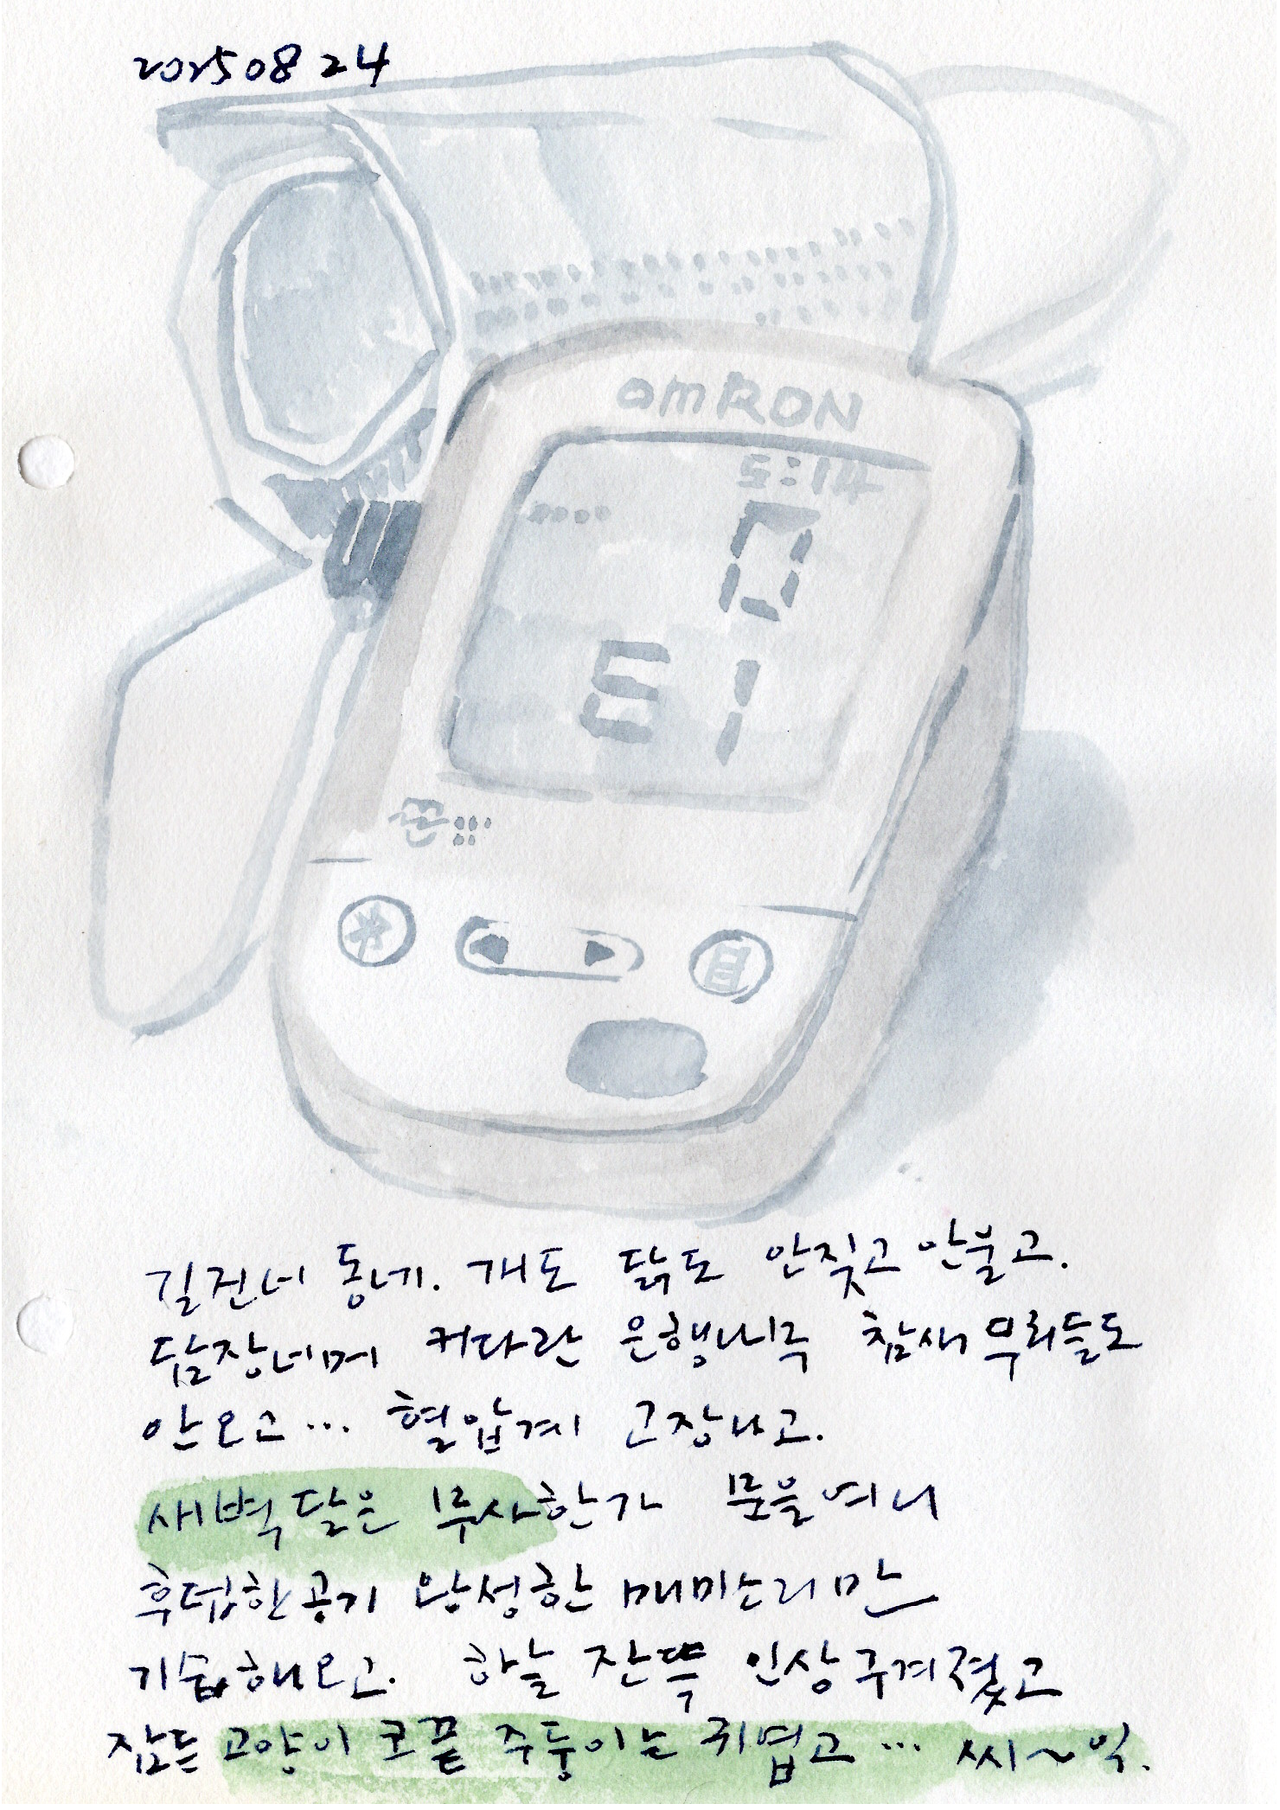 20250824
omRON
5:14
0
E1
길건너 동네. 개도 닭도 안짖고 안울고.
담장너머 커다란 은행나무 참새무리들도
안오고... 혈압계 고장나고.
새벽달은 무사한가 문을여니
후덥한공기 왕성한 매미소리만
기습해오고. 하늘 잔뜩 인상구겨졌고
잠든 고양이 코끝 주둥이는 귀엽고... 씨~익.